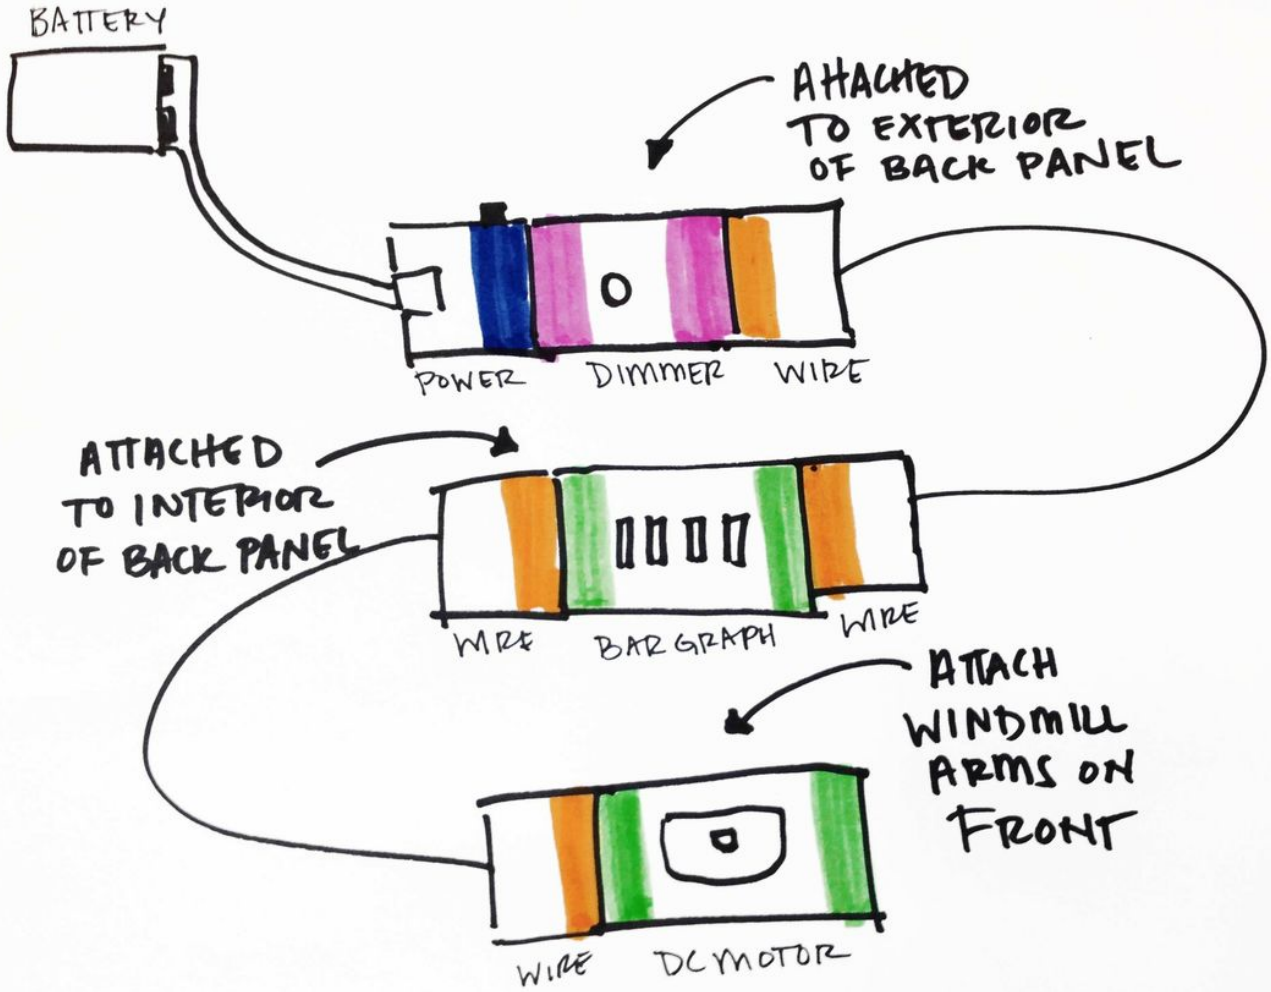 BATTERY
ATTACHED
TO EXTERIOR
OF BACK PANEL
POWER
DIMMER
WIRE
ATTACHED
TO INTERIOR
OF BACK PANEL
WIRE
BAR GRAPH
WIRE
ATTACH
WINDMILL
ARMS ON
FRONT
WIRE
DC MOTOR